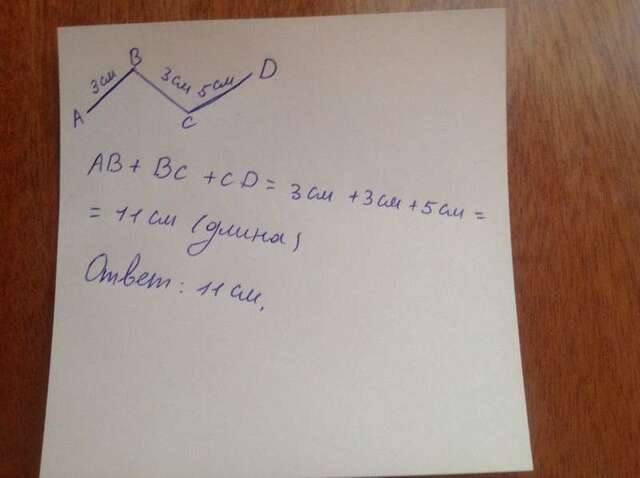 B
D
3см
3см
5см
A
C
AB + BC + CD = 3см + 3см + 5см =
= 11 см (длина)
Ответ: 11 см.